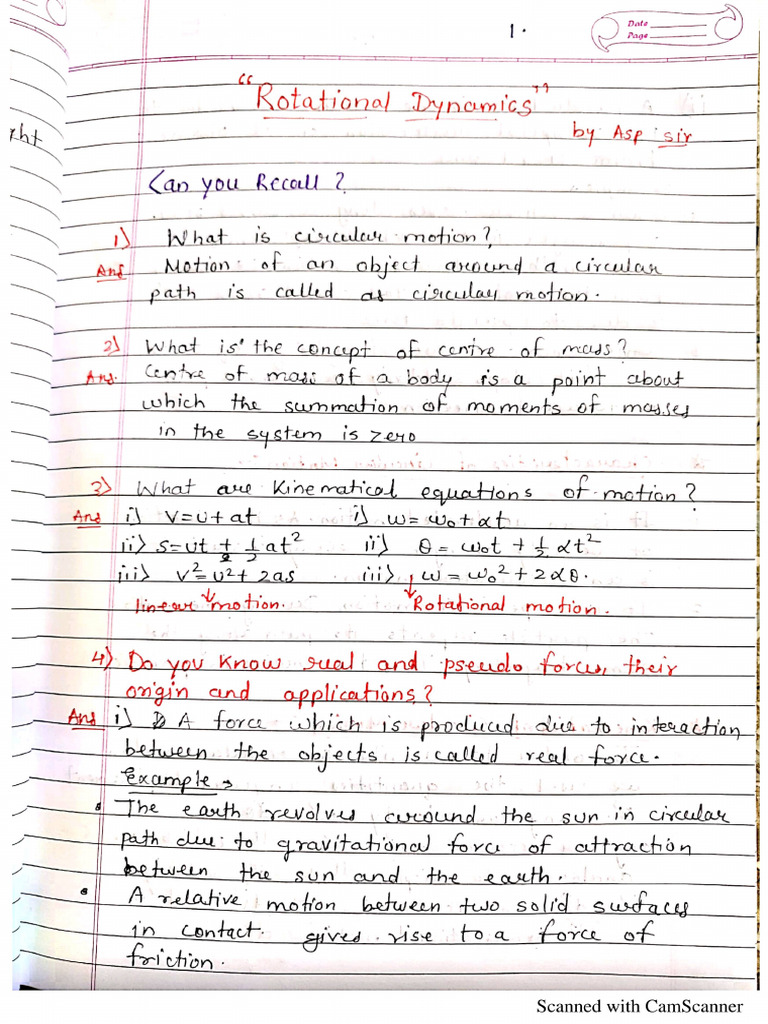 1.
Date
Page
"Rotational Dynamics"
by Asp sir
ght
Can you Recall?
1) What is circular motion?
Ans Motion of an object around a circular
path is called as circular motion.
2) What is the concept of centre of mass?
Ans. Centre of mass of a body is a point about
which the summation of moments of masses
in the system is zero
3) What are Kinematical equations of motion?
Ans i) v=u+at i) ω=ω₀+αt
ii) s=ut + 1/2 at² ii) θ=ω₀t + 1/2 αt²
iii) v²=u²+2as iii) ω=ω₀²+2αθ.
linear motion. Rotational motion.
4) Do you know real and pseudo forces, their
origin and applications?
Ans i) A force which is produced due to interaction
between the objects is called real force.
Example →
• The earth revolves around the sun in circular
path due to gravitational force of attraction
between the sun and the earth.
• A relative motion between two solid surfaces
in contact gives rise to a force of
friction.
Scanned with CamScanner